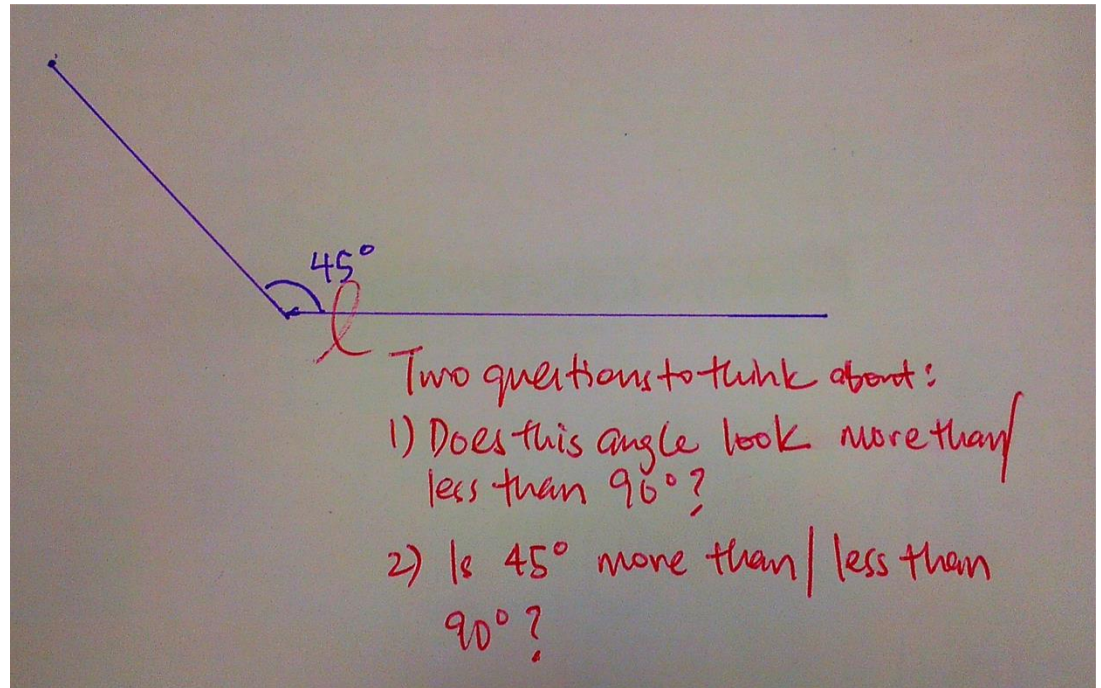 45°
Two questions to think about:
1) Does this angle look more than/
less than 90°?
2) Is 45° more than/less than
90°?